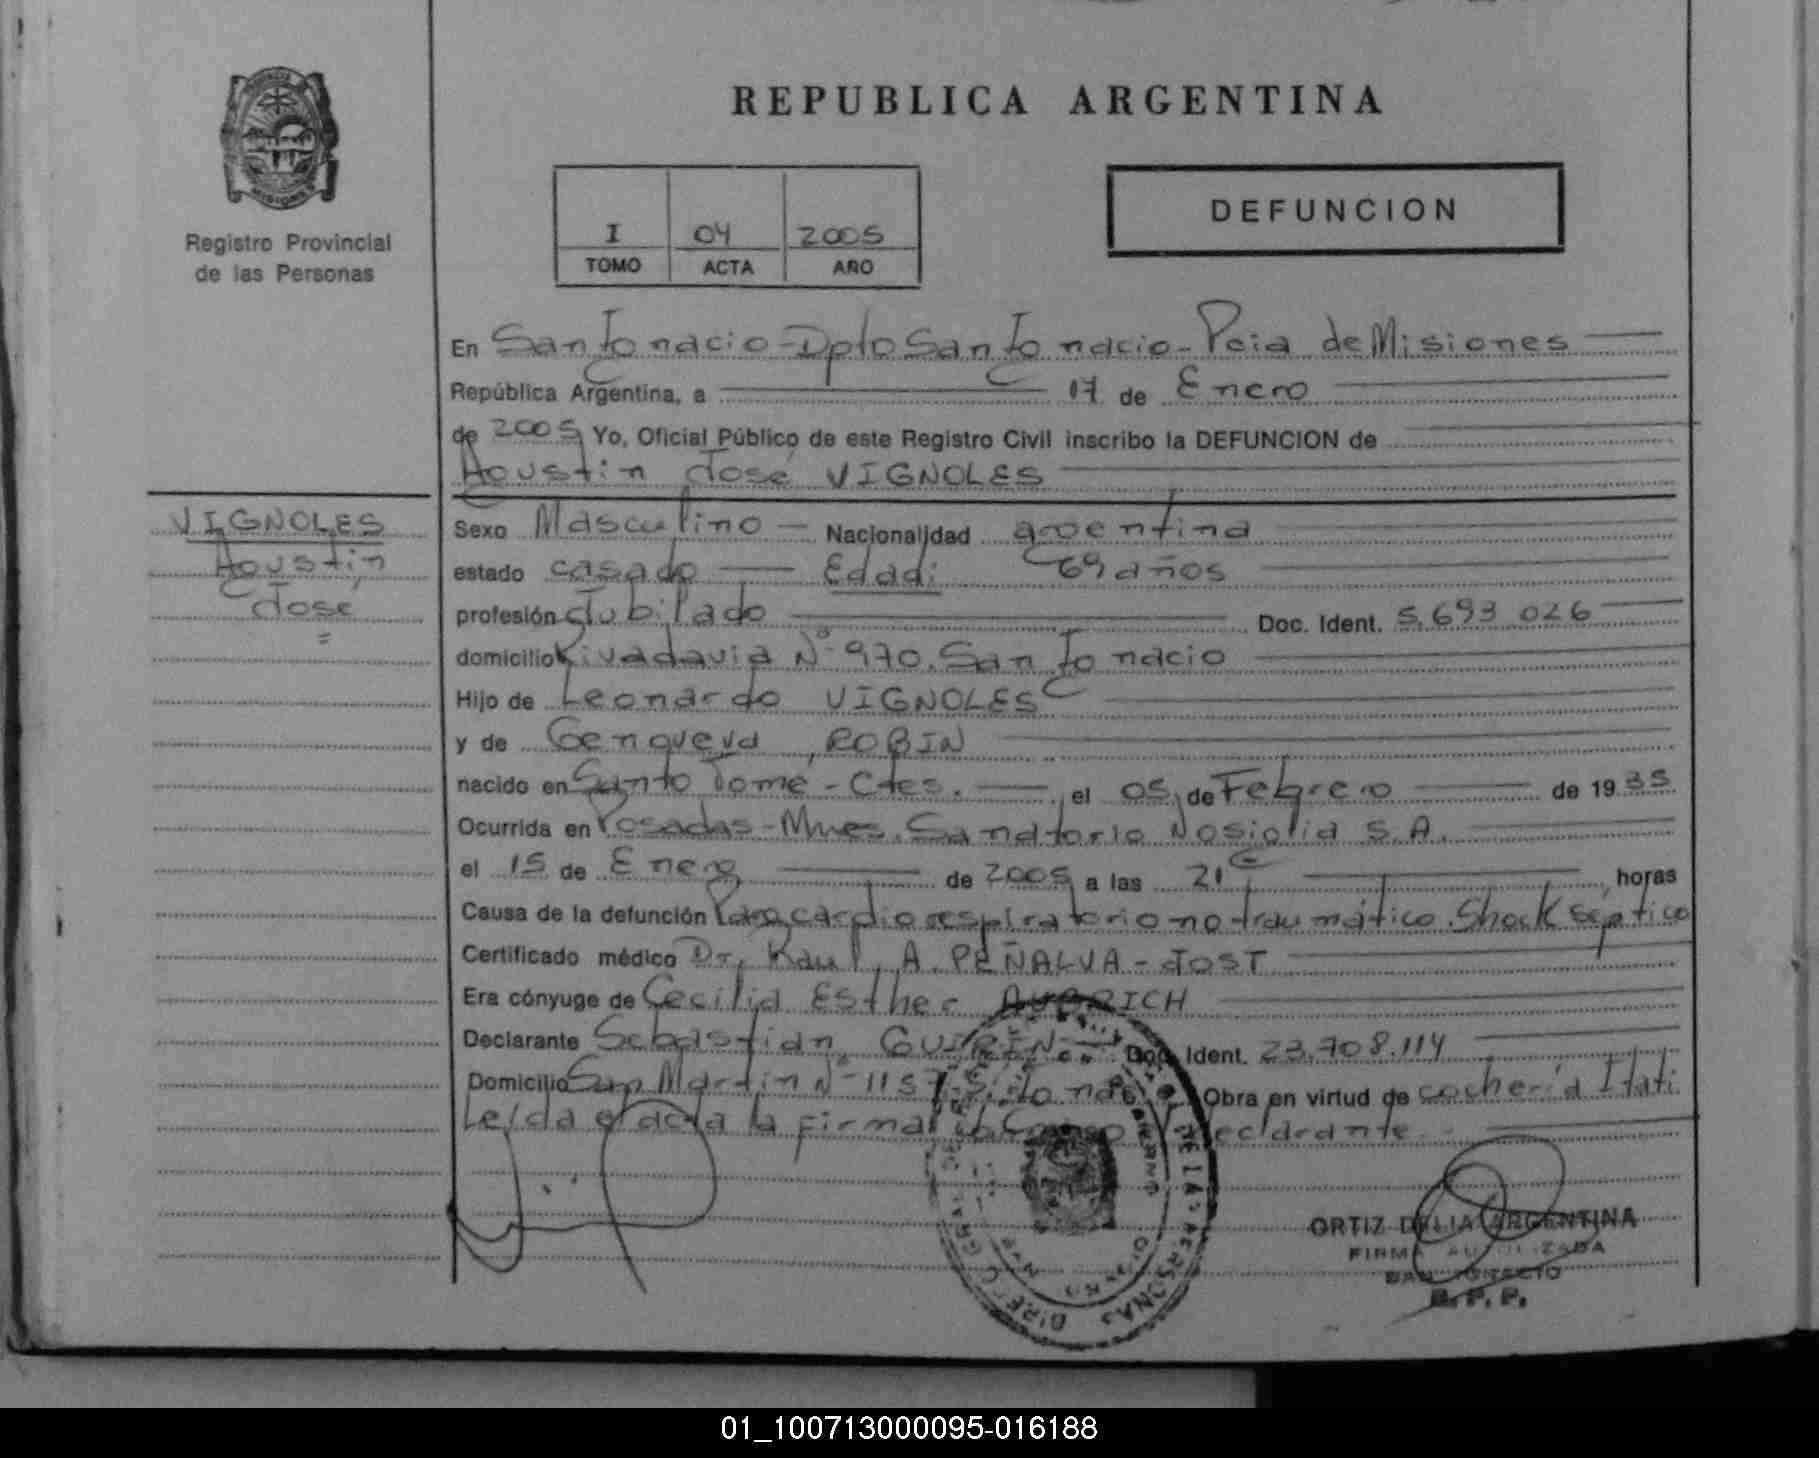 REPUBLICA ARGENTINA
Registro Provincial
de las Personas
I 04 2005
TOMO ACTA AÑO
DEFUNCION
En San Ignacio - Dpto San Ignacio - Pcia de Misiones
República Argentina, a 17 de Enero
de 2005 Yo, Oficial Público de este Registro Civil inscribo la DEFUNCION de
Agustin José VIGNOLES
VIGNOLES
Agustín
José
Sexo Masculino - Nacionalidad argentina
estado casado Edad: 69 años
profesión Jubilado Doc. Ident. 5.693.026
domicilio Rivadavia Nº 970. San Ignacio
Hijo de Leonardo VIGNOLES
y de Genoveva ROBIN
nacido en Santo Tomé - Ctes. el 05 de Febrero de 1935
Ocurrida en Posadas - Mnes. Sanatorio Nosiglia S.A.
el 15 de Enero de 2005 a las 21 horas
Causa de la defunción Paro cardiorespiratorio no traumático. Shock séptico
Certificado médico Dr. Raul A. PEÑALVA - JOST
Era cónyuge de Cecilia Esther
Declarante Sebastián Doc. Ident. 23.708.114
Domicilio San Martín Nº 1157 S. Ignacio Obra en virtud de cochería Itatí
Leída el acta la firma conmigo el declarante.-
ORTIZ DELIA ARGENTINA
FIRMA AUTORIZADA
SAN IGNACIO
R. P. P.
01_100713000095-016188